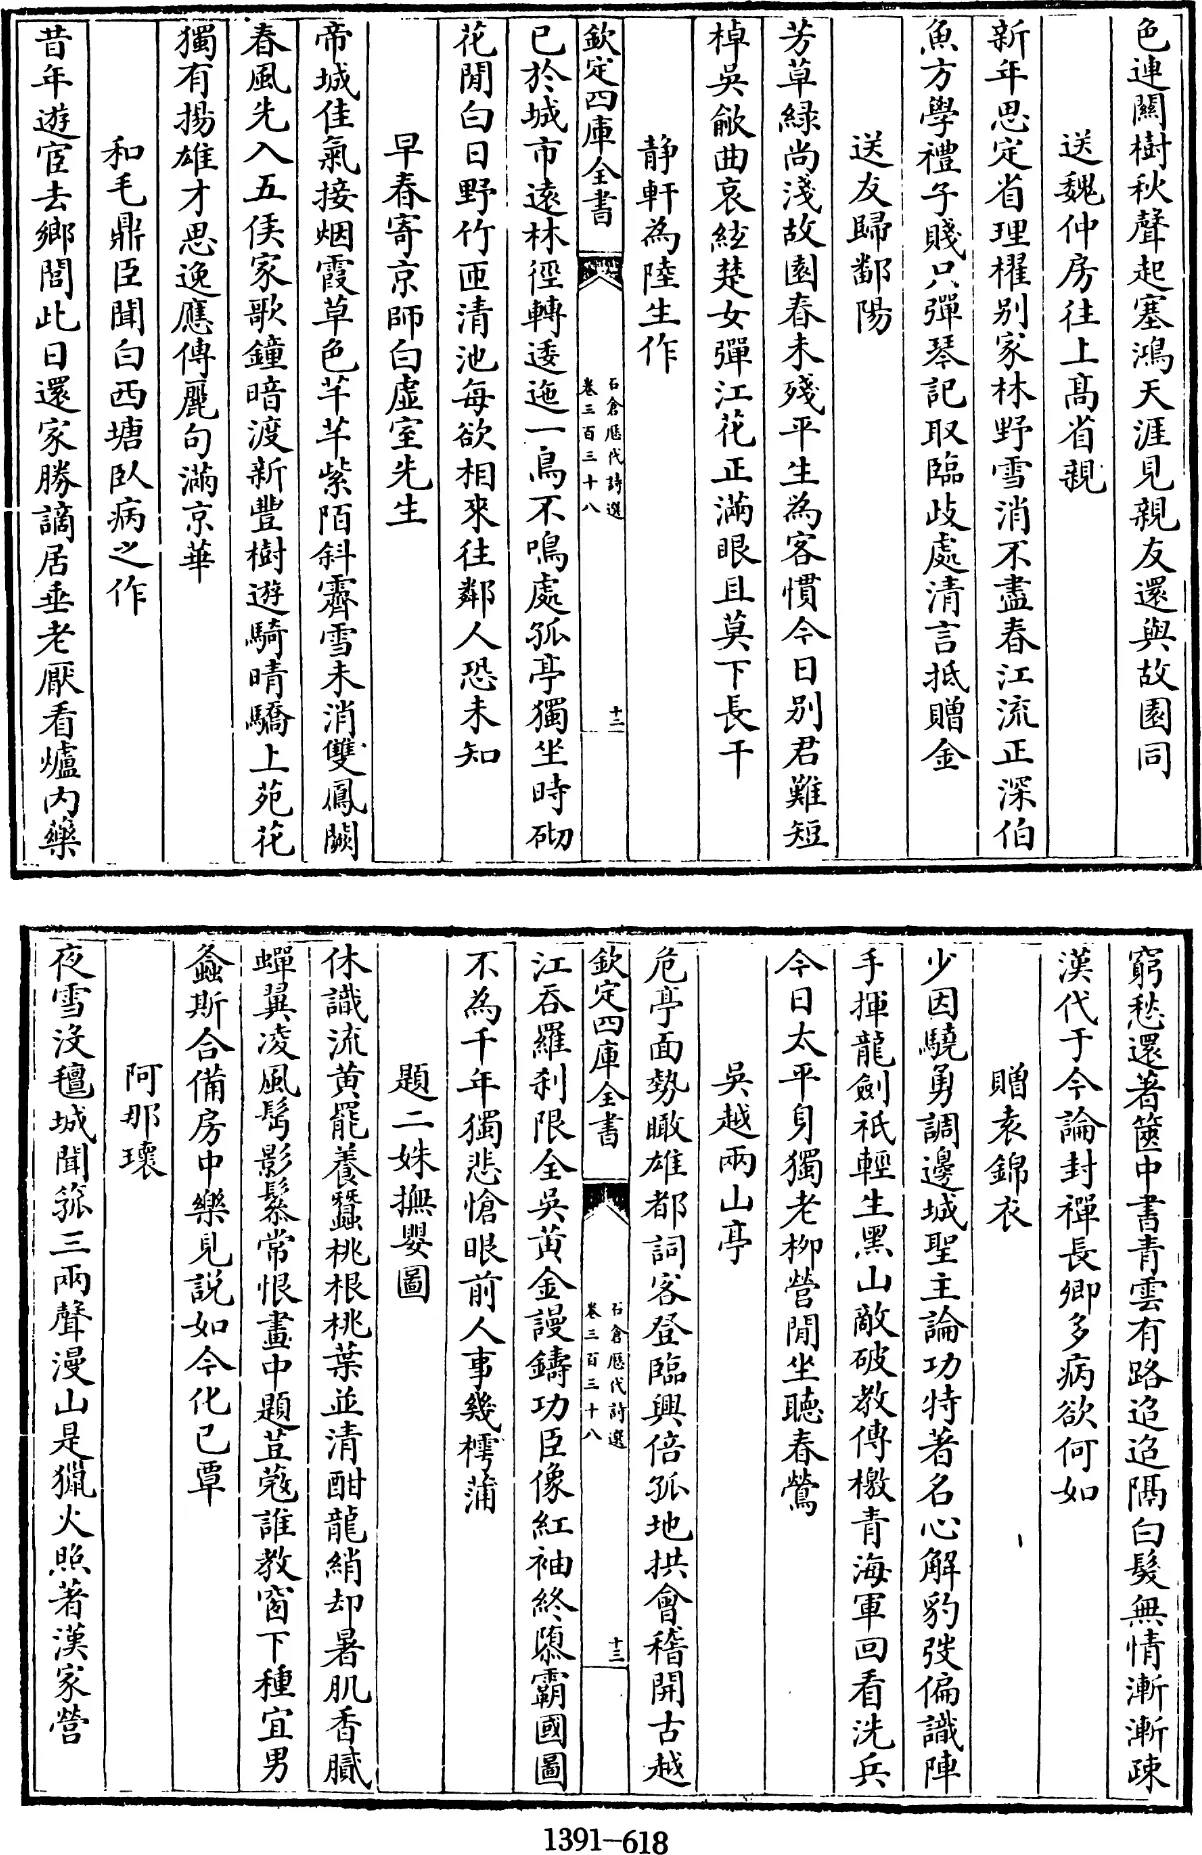 色連關樹秋聲起塞鴻天涯見親友還與故園同
送魏仲房往上髙省親
新年思定省理櫂别家林野雪消不盡春江流正深伯
魚方學禮子賤只彈琴記取臨歧處清言抵贈金
送友歸鄱陽
芳草緑尚淺故園春未殘平生為客慣今日别君難短
棹吳歈曲哀絃楚女彈江花正滿眼且莫下長干
静軒為陸生作
欽定四庫全書
石倉歴代詩選
卷三百三十八
十二
已於城市遠林徑轉逶迤一鳥不鳴處孤亭獨坐時砌
花閒白日野竹匝清池每欲相來往鄰人恐未知
早春寄京師白虚室先生
帝城佳氣接烟霞草色芊芊紫陌斜霽雪未消雙鳳闕
春風先入五侯家歌鐘暗渡新豐樹遊騎晴驕上苑花
獨有揚雄才思逸應傳麗句滿京華
和毛鼎臣聞白西塘臥病之作
昔年遊宦去鄉閭此日還家勝謫居垂老厭看爐内藥
窮愁還著篋中書青雲有路迢迢隔白髮無情漸漸疎
漢代于今論封禪長卿多病欲何如
贈袁錦衣
少因驍勇調邊城聖主論功特著名心解豹弢偏識陣
手揮龍劍祇輕生黑山敵破教傳檄青海軍回看洗兵
今日太平身獨老柳營閒坐聽春鶯
吳越兩山亭
危亭面勢瞰雄都詞客登臨興倍孤地拱會稽開古越
欽定四庫全書
石倉歴代詩選
卷三百三十八
十三
江吞羅刹限全吳黄金謾鑄功臣像紅袖終隳霸國圖
不為千年獨悲愴眼前人事幾樗蒲
題二姝撫嬰圖
休識流黄罷養蠶桃根桃葉並清酣龍綃却暑肌香膩
蟬翼凌風髩影鬖常恨畫中題荳蔻誰教窗下種宜男
螽斯合備房中樂見説如今化已覃
阿那瓌
夜雪没氊城聞笳三兩聲漫山是獵火照著漢家營
1391-618